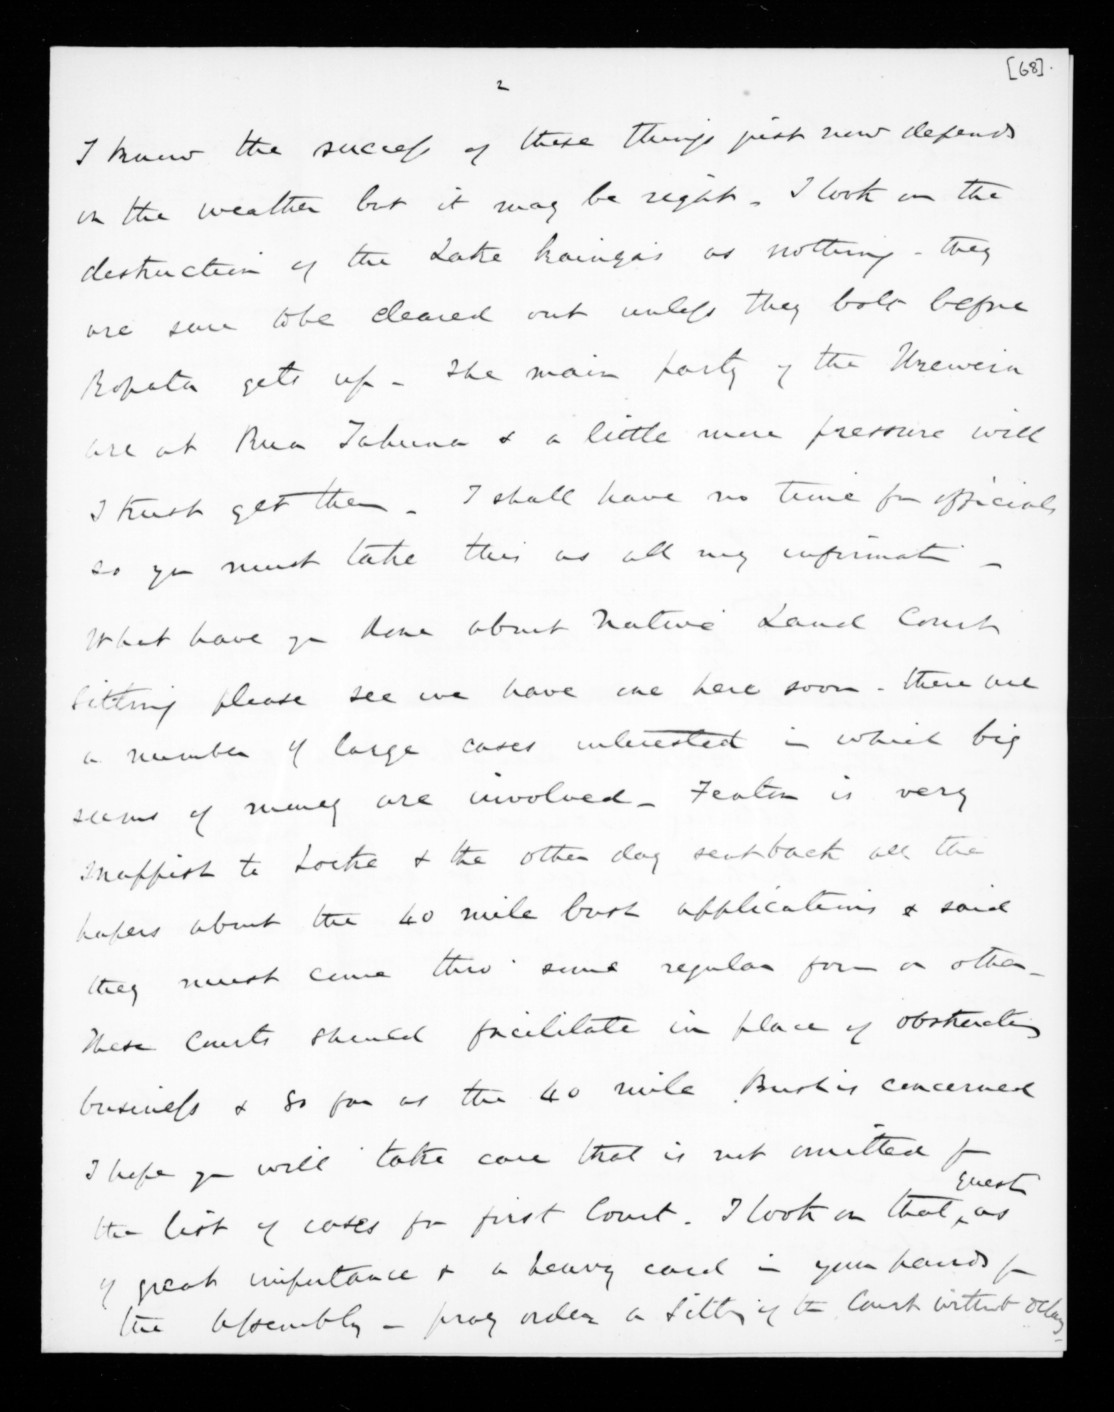 [68].
2
I know the success of these things just now depends
on the weather but it may be right - I look on the
destruction of the Lake kaingas as nothing - they
are sure to be cleared out unless they bolt before
Ropata gets up - The main party of the Urewera
are at Rua Tahuna & a little more pressure will
I trust get them - I shall have no time for officials
so you must take this as all my informatn -
What have you done about Native Land Court
sitting please see we have one here soon - there are
a number of large cases interested in which big
sums of money are involved - Fenton is very
snappish to Locke & the other day sent back all the
papers about the 40 mile bush applications & said
they must come thro' some regular form or other -
These Courts should facilitate in place of obstructing
business & so far as the 40 mile Bush is concerned
I hope you will take care that is not omitted fm
the list of cases for first Court. I look on that quest as
of great importance & a heavy card in your hands for
the Assembly - pray order a Sitting of the Court without delay -